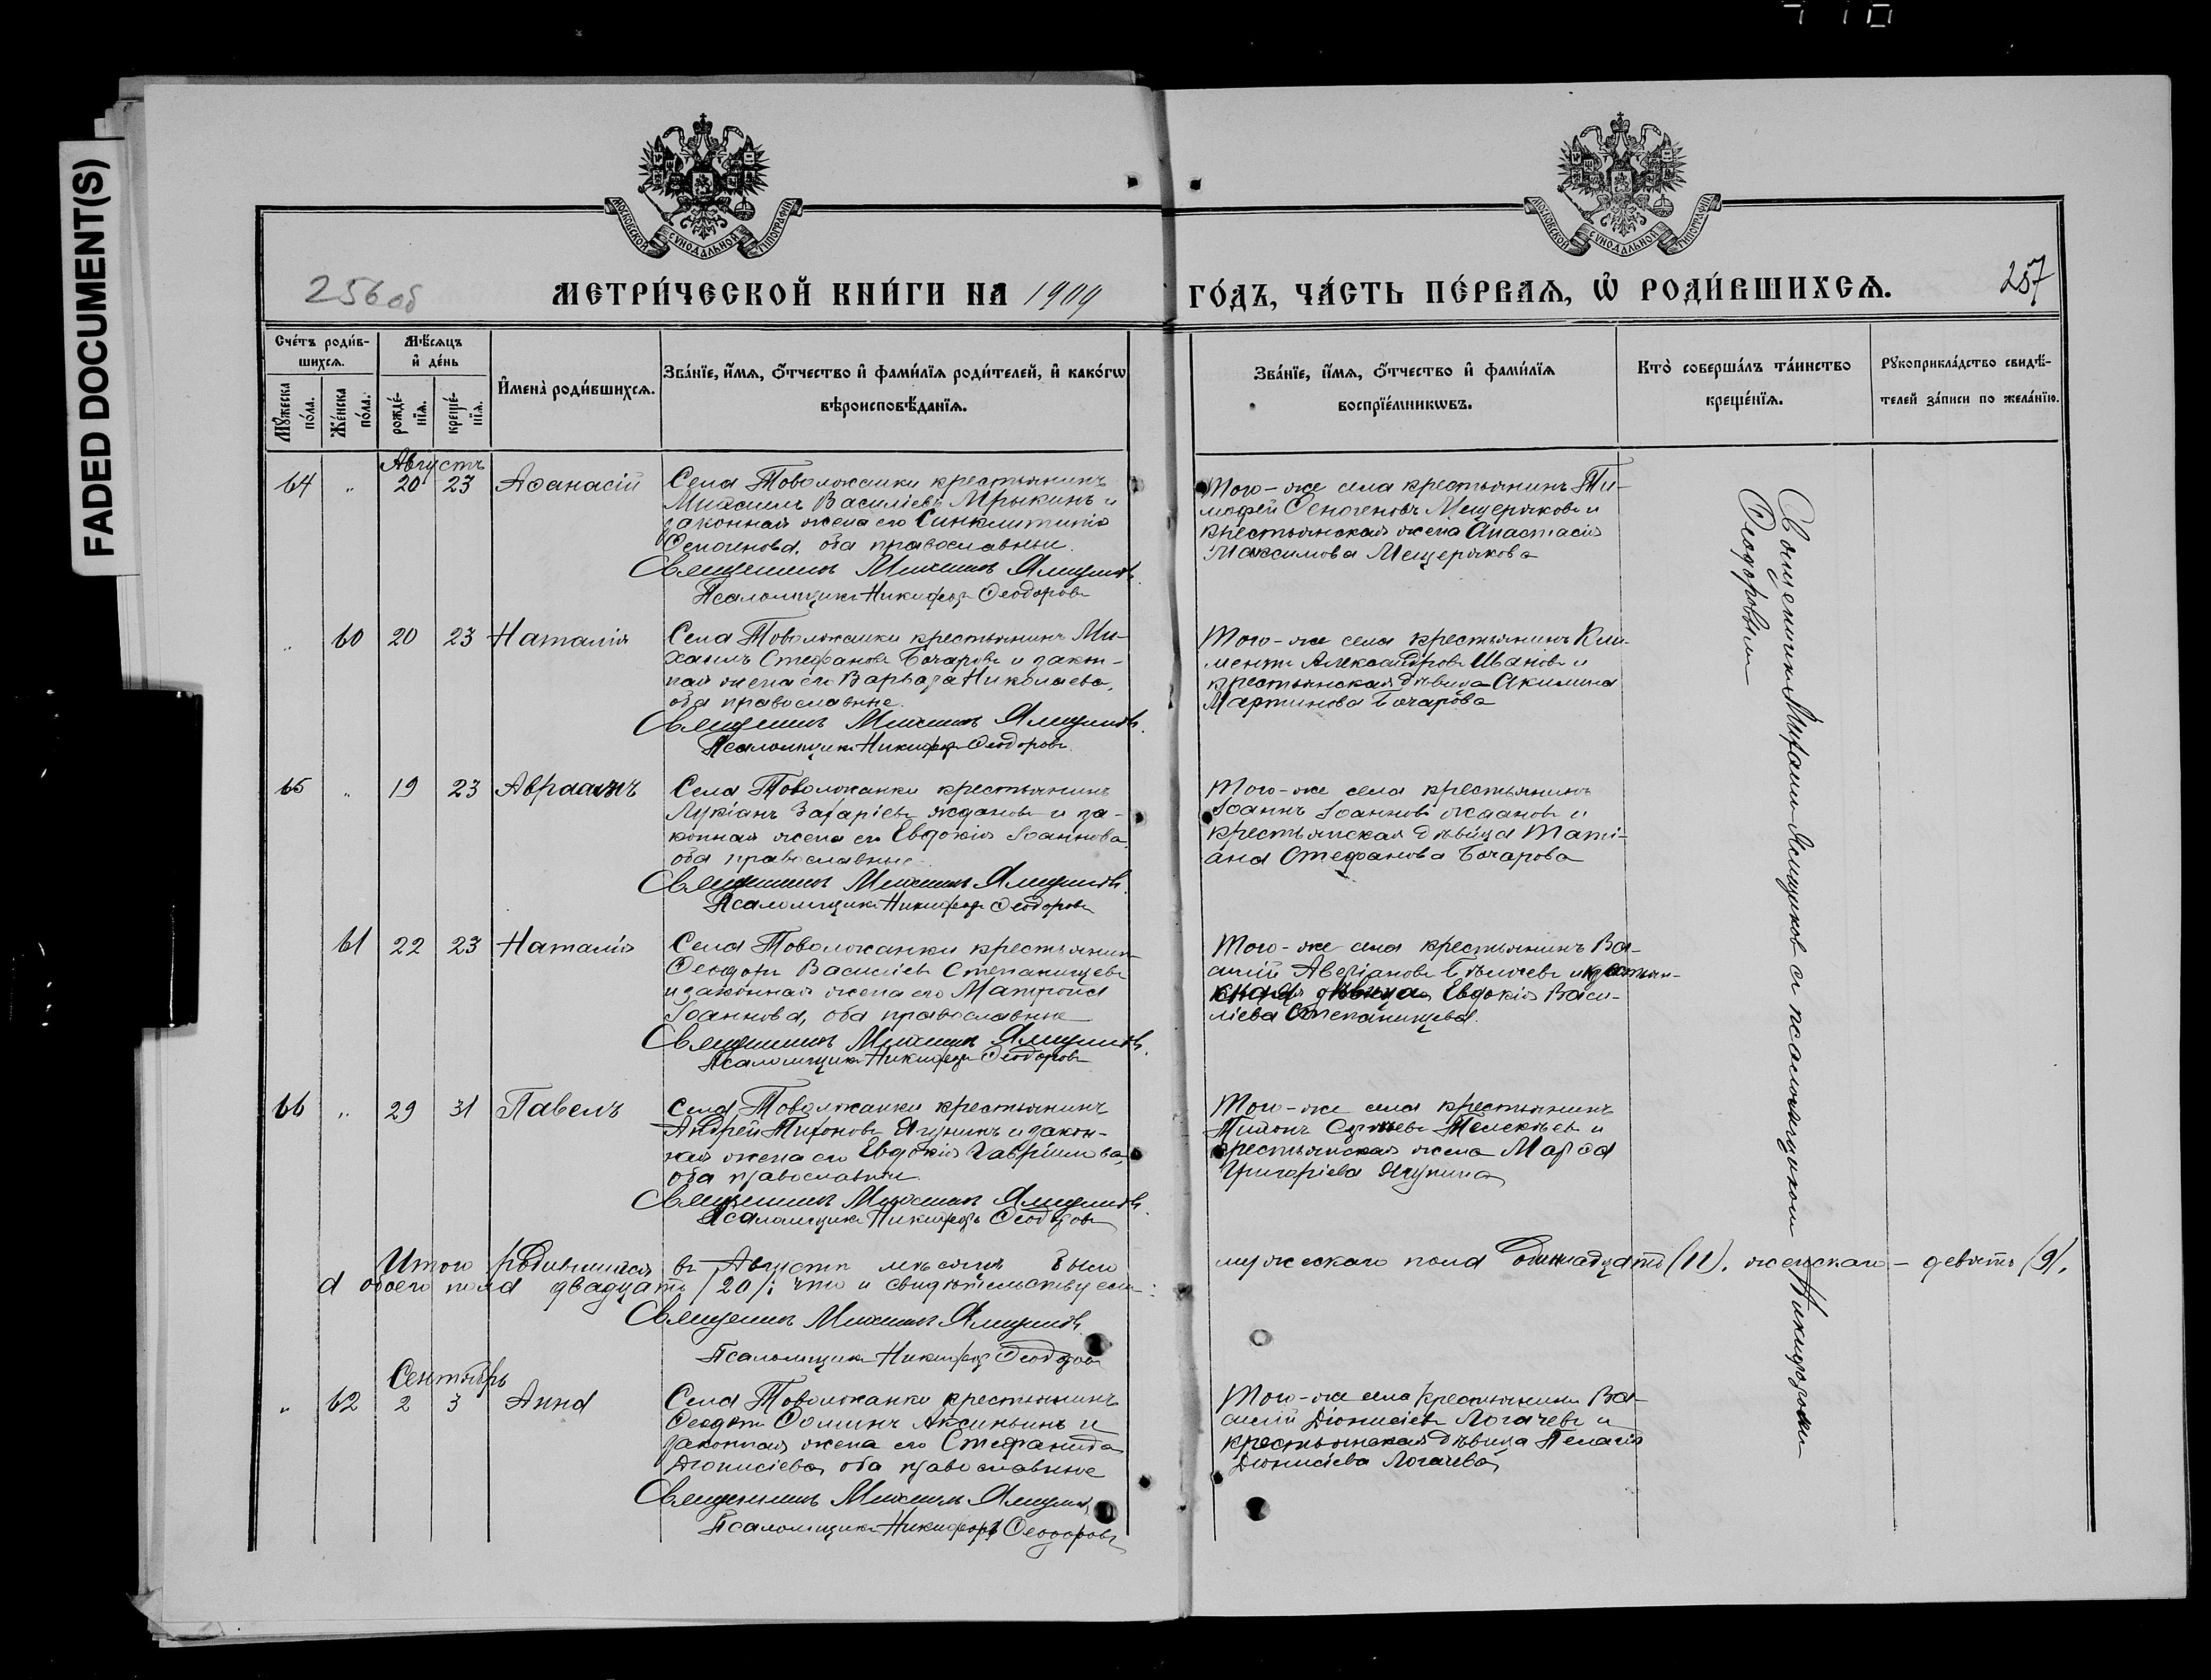 FADED DOCUMENT(S)
МОСКОВСКОЙ СѴНОДАЛЬНОЙ ТИПОГРАФІИ
МОСКОВСКОЙ СѴНОДАЛЬНОЙ ТИПОГРАФІИ
256об
МЕТРИ́ЧЕСКОЙ КНИ́ГИ НА 1909
ГО́ДЪ, ЧА́СТЬ ПЕ́РВАѦ, Ѡ҆ РОДИ́ВШИХСѦ.
257
Сче́тъ роди́в-
шихсѧ.
Мꙋ́жеска по́ла.
Же́нска по́ла.
Мѣ́сѧцъ
и҆ де́нь
рожде́-
нїѧ.
креще́-
нїѧ.
И҆мена̀ роди́вшихсѧ.
Зва́нїе, и҆́мѧ, ѻ҆́тчество и҆ фами́лїѧ роди́телей, и҆ како́гѡ
вѣроисповѣ́данїѧ.
Зва́нїе, и҆́мѧ, ѻ҆́тчество и҆ фами́лїѧ
воспрїе́мникѡвъ.
Кто̀ соверша́лъ та́инство
креще́нїѧ.
Рꙋкоприкла́дство свидѣ́-
телей за́писи по жела́нїю.
Августъ
64 " 20 23 Аѳанасій
Села Товолжанки крестьянинъ
Михаилъ Василіевъ Мрыкинъ и
законная жена его Синклитикія
оба православные.
Священникъ Михаилъ Ямщиковъ.
Псаломщикъ Никифоръ Ѳеодоровъ
Того-же села крестьянинъ Ти-
мофей Мещеряковъ и
крестьянская жена Анастасія
Максимова Мещерякова
" 60 20 23 Наталія
Села Товолжанки крестьянинъ Ми-
хаилъ Стефановъ Бочаровъ и закон-
ная жена его Варвара Николаева,
оба православные.
Священникъ Михаилъ Ямщиковъ.
Псаломщикъ Никифоръ Ѳеодоровъ.
Того-же села крестьянинъ Кли-
ментъ Александровъ Ивановъ и
крестьянская дѣвица Акилина
Мартинова Бочарова
65 " 19 23 Авраамъ
Села Товолжанки крестьянинъ
Лукіанъ Захаріевъ Ждановъ и за-
конная жена его Евдокія Іоаннова
оба православные.
Священникъ Михаилъ Ямщиковъ.
Псаломщикъ Никифоръ Ѳеодоровъ
Того-же села крестьянинъ
Іоаннъ Іоанновъ Ждановъ и
крестьянская дѣвица Тати-
ана Стефанова Бочарова
61 22 23 Наталія
Села Товолжанки крестьянинъ
Ѳеодотъ Василіевъ Степанищевъ
и законная жена его Матрона
Іоаннова, оба православные
Священникъ Михаилъ Ямщиковъ.
Псаломщикъ Никифоръ Ѳеодоровъ
Того-же села крестьянинъ Ва-
силій и крестьян-
ская дѣвица Евдокія Васи-
ліева Степанищева.
66 " 29 31 Павелъ
Села Товолжанки крестьянинъ
Андрей Тихоновъ Ягупинъ и закон-
ная жена его Евдокія Гавріилова,
оба православные
Священникъ Михаилъ Ямщиковъ.
Псаломщикъ Никифоръ Ѳеодоровъ
Того-же села крестьянинъ
и
крестьянская жена Марѳа
Григоріева Ягупина
Итого родившихся въ Августѣ мѣсяцѣ было мужескаго пола одиннадцать (11), женскаго - девять (9),
а обоего пола двадцать (20); что и свидѣтельствуемъ:
Священникъ Михаилъ Ямщиковъ.
Псаломщикъ Никифоръ Ѳеодоровъ
Сентябрь
" 62 2 3 Анна
Села Товолжанки крестьянинъ
Ѳеодотъ Ѳоминъ Аксиньинъ и
законная жена его Стефанида
Діонисіева, оба православные
Священникъ Михаилъ Ямщиковъ.
Псаломщикъ Никифоръ Ѳеодоровъ
Того-же села крестьянинъ Ва-
силій Діонисіевъ Логачевъ и
крестьянская дѣвица Пелагія
Діонисіева Логачева
Священникъ Михаилъ Ямщиковъ съ псаломщикомъ Никифоромъ
Ѳеодоровымъ